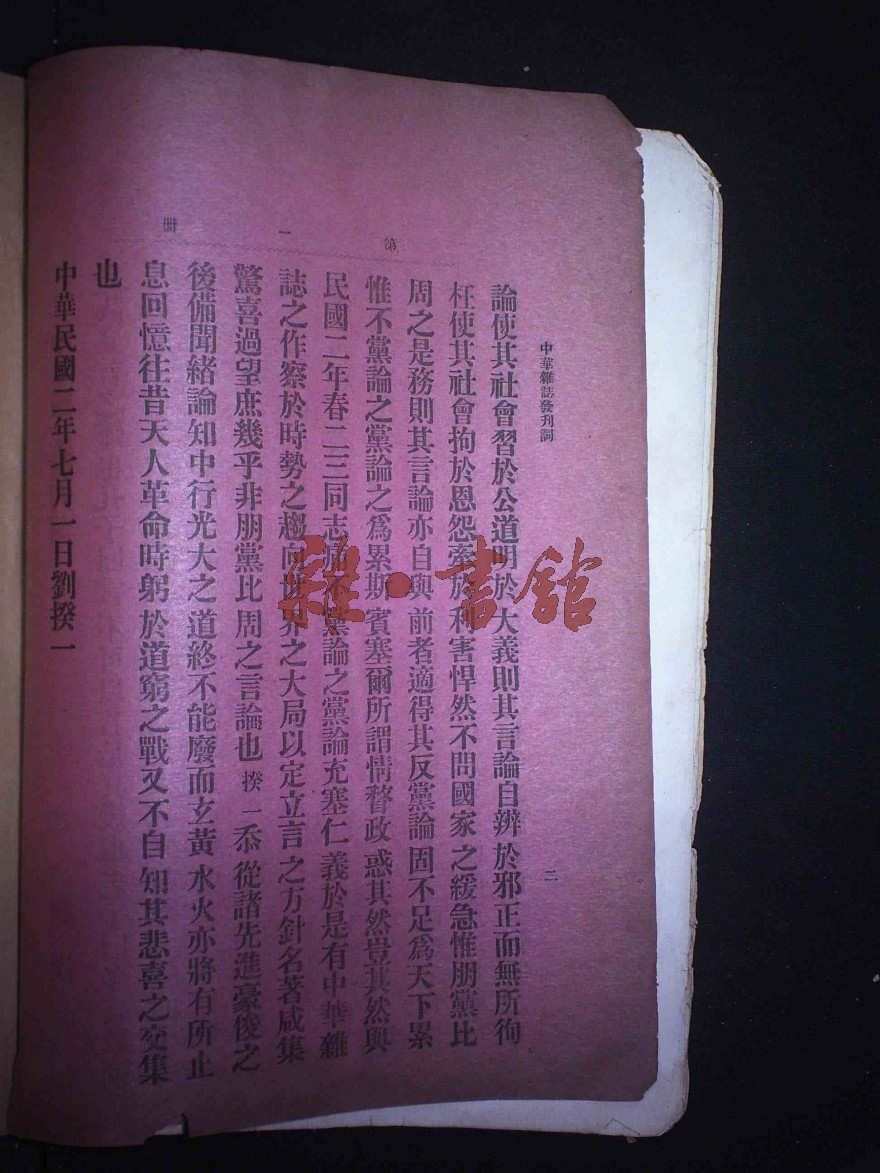 第一册
中華雜誌發刊詞
二
論使其社會習於公道明於大義則其言論自辨於邪正而無所徇
枉使其社會拘於恩怨牽於利害悍然不問國家之緩急惟朋黨比
周之是務則其言論亦自與前者適得其反黨論固不足爲天下累
惟不黨論之黨論之爲累斯賓塞爾所謂情瞀政惑其然豈其然與
民國二年春二三同志痛不黨論之黨論充塞仁義於是有中華雜
誌之作察於時勢之趨向世界之大局以定立言之方針名著咸集
驚喜過望庶幾乎非朋黨比周之言論也揆一忝從諸先進豪俊之
後備聞緒論知中行光大之道終不能廢而玄黃水火亦將有所止
息回憶往昔天人革命時躬於道窮之戰又不自知其悲喜之交集
也
中華民國二年七月一日劉揆一
雜·書館